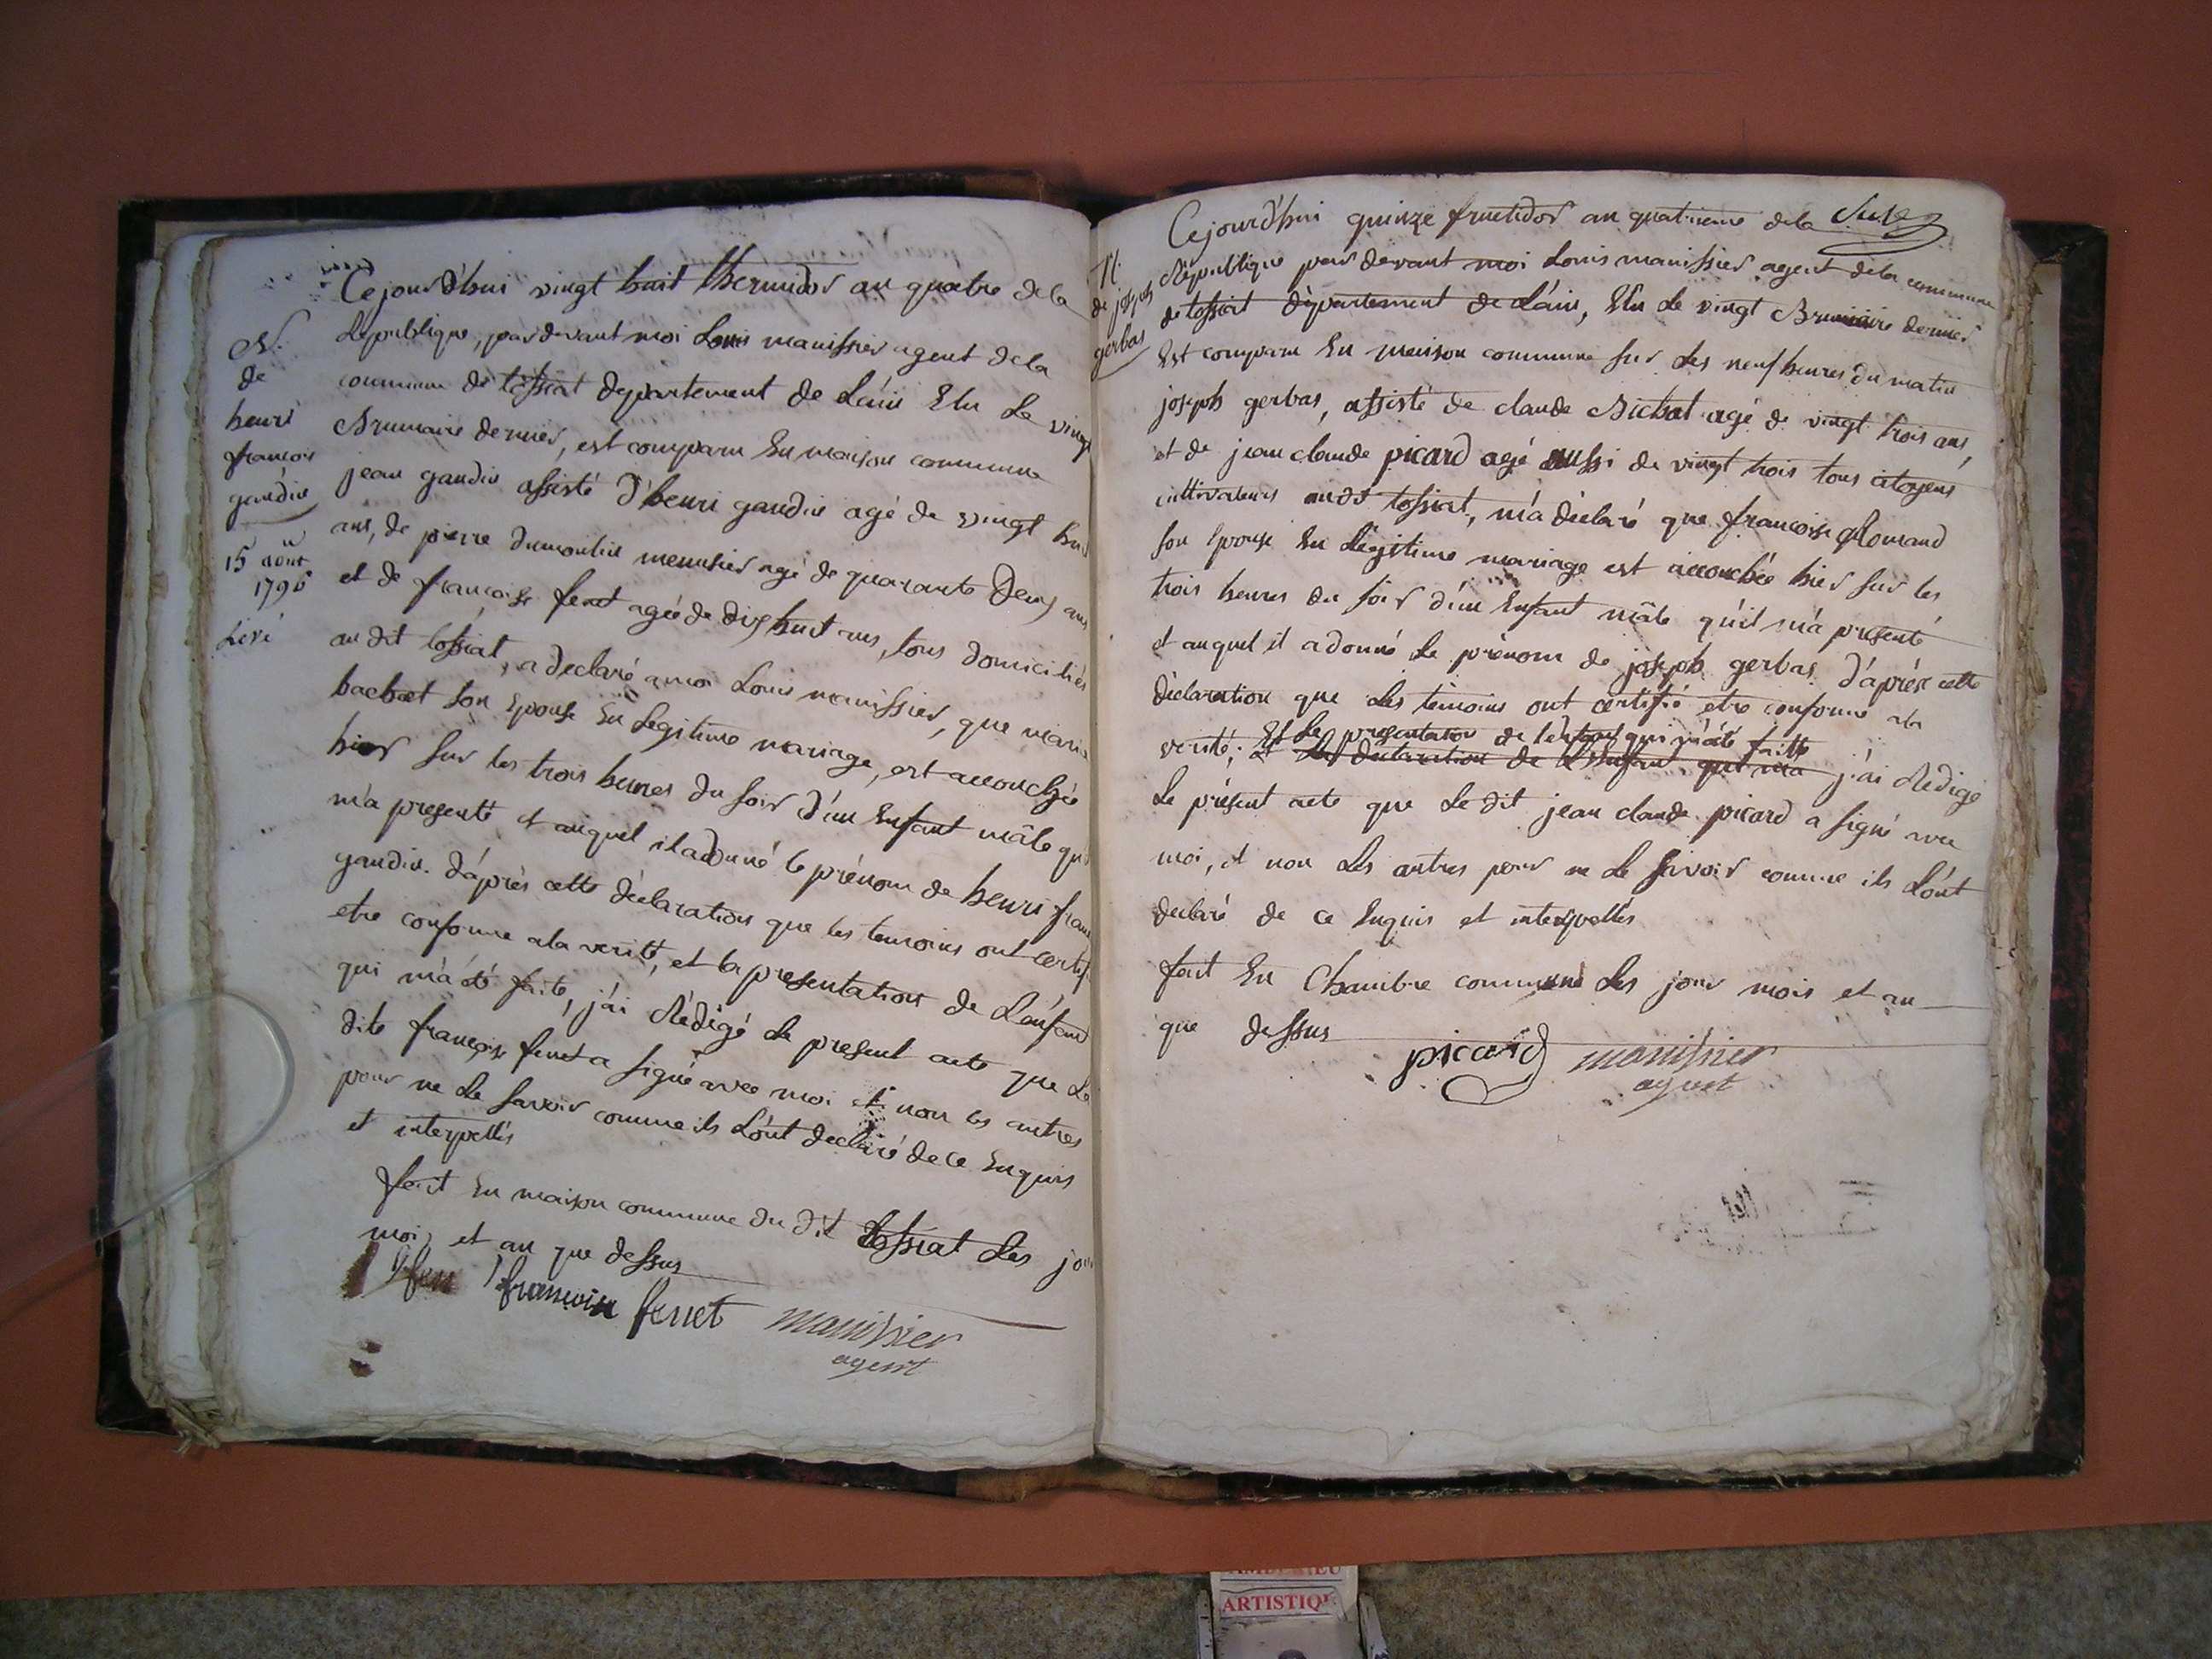 Cejourd'hui vingt huit thermidor an quatre dela
Republique, pardevant moi Louis manissier agent dela
commune de tossiat departement de L'ain Elu Le vingt
Brumaire dernier, est comparu En maison commune
jean gaudin assisté d'henri gaudin agé de vingt huit
ans, de pierre dumoulin menusier agé de quarante Deux ans
et de francoise feret agée de dix huit ans, tous domiciliés
au dit tossiat, a declaré a moi Louis manissier, que marie
bachet son Epouse En Legitime mariage, est accouchée
hier sur les trois heures du soir d'un Enfant mâle qu'il
m'a presenté et auquel il a donné le prénom de henri fran
gaudin. d'après cette déclaration que les temoins ont certif
etre conforme ala verité, et la presentation de L'enfant
qui m'a été faite, j'ai Rédigé Le present acte que La
dite françoise feret a signé avec moi et non les autres
pour ne Le savoir comme ils L'ont declaré de ce Enquis
et interpellés
fait En maison commune du dit tossiat Les jour
mois et an que dessus
francoise ferret manissier
agent
N.
de
henri
francois
gaudin
15 août
1796
Livé
Cejourd'hui quinze fructidor an quatrieme dela
Republique pardevant moi Louis manissier agent dela commune
de tossiat département de L'ain, Elu Le vingt Brumaire dernier
Est comparu En maison commune sur Les neuf heures du matin
joseph gerbas, assisté de claude Bichat agé de vingt trois ans,
et de jean claude picard agé aussi de vingt trois tous citoyens
cultivateurs audt tossiat, m'a déclaré que francoise Romand
son Epouse En Légitime mariage est accouchée hier sur les
trois heures du soir d'un Enfant mâle qu'il m'a presenté
et auquel il a donné Le prénom de joseph gerbas d'après cette
déclaration que Les témoins ont certifié etre conforme ala
verité; Et La presentation de L'enfant qui m'a été faitte
declaration de L'Enfant qui m'a j'ai Redigé
Le présent acte que Le dit jean claude picard a signé avec
moi, et non Les autres pour ne Le savoir comme ils L'ont
declaré de ce Enquis et interpellés
fait En Chambre commune Les jour mois et an
que dessus
picard manissier
agent
N.
de joseph
gerbas
ARTISTIQ